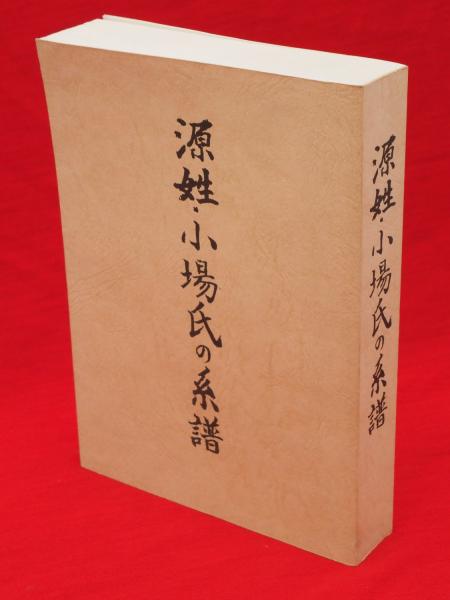 源姓・小場氏の系譜
源姓・小場氏の系譜